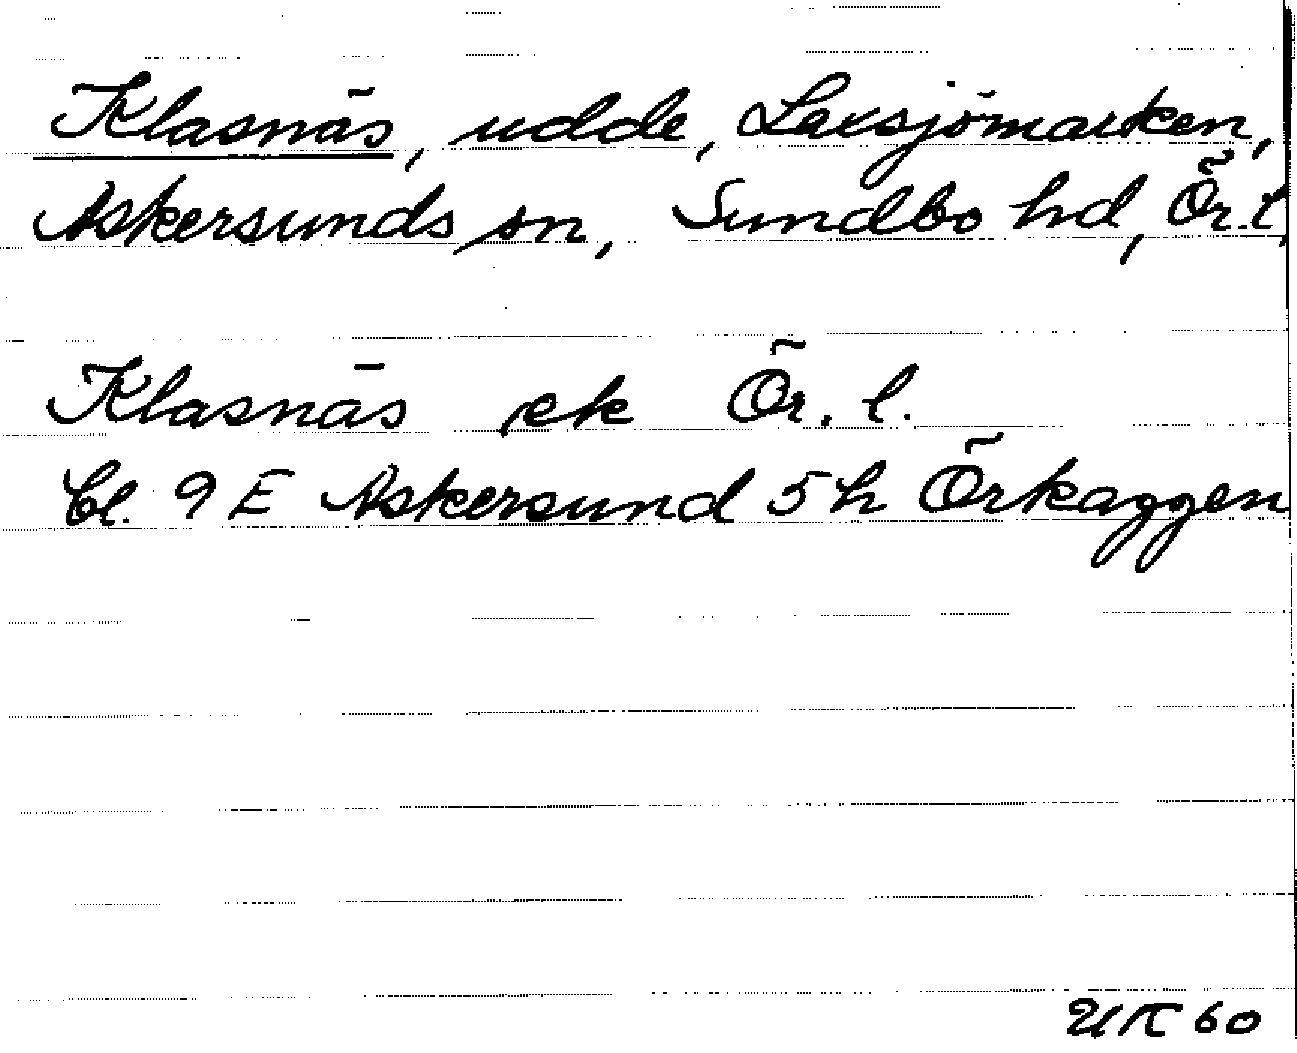 Klasnäs, udde, Laxsjömarken,
Askersunds sn, Sundbo hd, Ör. l.
Klasnäs ek Ör. l.
Bl. 9 E Askersund 5 h Örkaggen
60